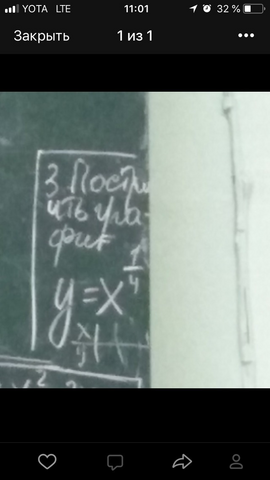 YOTA LTE 11:01 32 %
Закрыть 1 из 1
3 Постро
ить гра-
фик
y = x^1/4
x
y